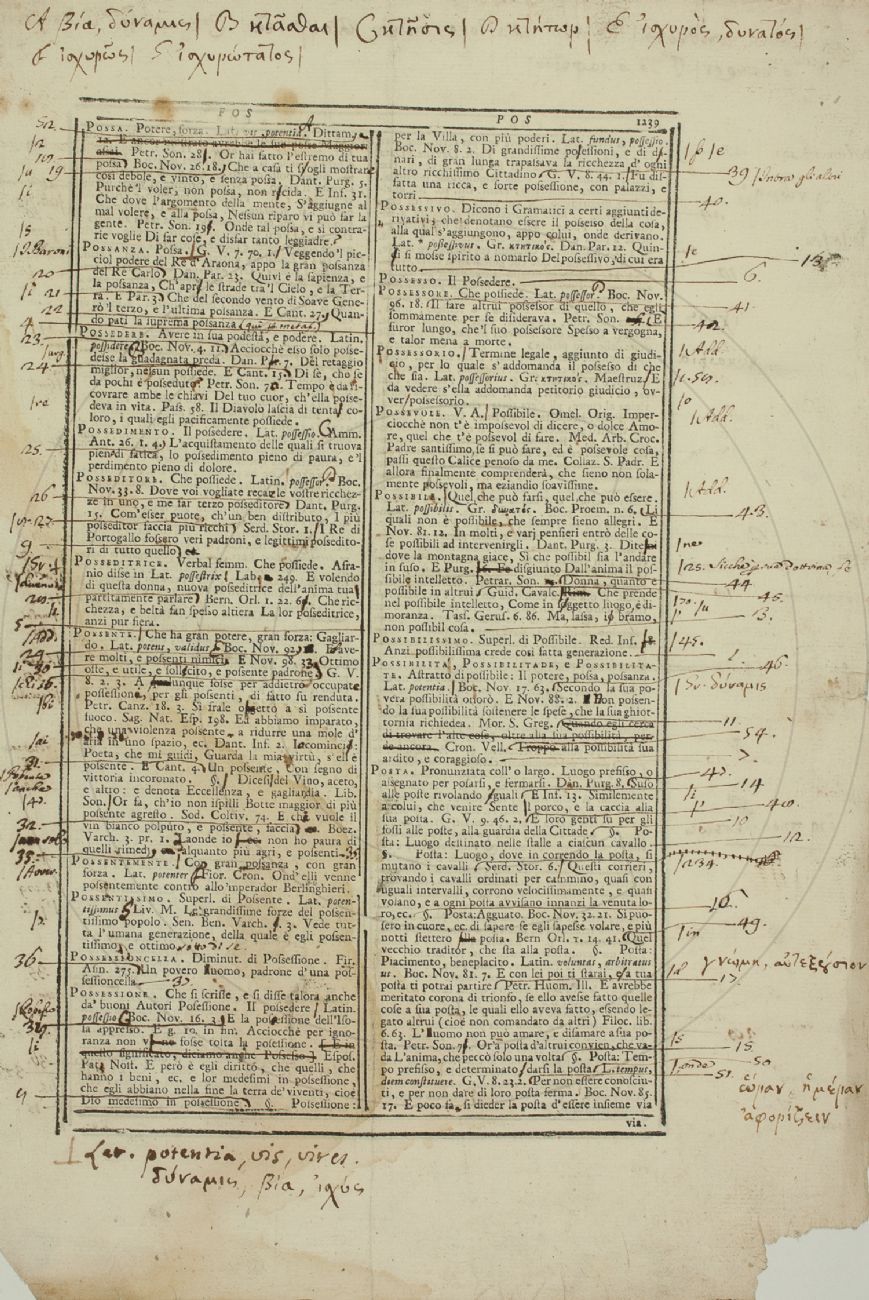 A βία, δύναμις | B κτᾶσθαι | C κτῆσις | D κτήτωρ | E ἰσχυρὸς, δυνατός |
F ἰσχυρῶς | G ἰσχυρώτατος |
POS
POSSA. Potere, forza. Lat. vis, potentia. Dittam.
Petr. Son. 28. Or hai fatto l'estremo di tua
possa. Boc. Nov. 26. 18. Che a casa ti sfogli mostrare
così debole, e vinto, e senza possa. Dant. Purg. 5.
Purchè 'l voler, non possa, non ricida. E Inf. 31.
Che dove l'argomento della mente, S'aggiugne al
mal volere, e alla possa, Nessun riparo vi può far la
gente. Petr. Son. 19. Onde tal possa, e sì contra-
rie voglie Di far cose, e disfar tanto leggiadre?
POSSANZA. Possa. G. V. 7. 70. 1. Veggendo 'l pic-
ciol podere del Re d'Araona, appo la gran possanza
del Re Carlo. Dan. Par. 23. Quivi è la sapienza, e
la possanza, Ch'aprì le strade tra 'l Cielo, e la Ter-
ra. E Par. 3. Che del secondo vento di Soave Gene-
rò 'l terzo, e l'ultima possanza. E Cant. 27. Quan-
do patì la suprema possanza
POSSEDERE. Avere in sua podestà, e podere. Latin.
possidere. Boc. Nov. 4. 11. Acciocchè esso solo posse-
desse la guadagnata preda. Dan. Par. 7. Del retaggio
miglior, nessun possiede. E Cant. 15. Di sè, che se
da pochi è posseduto. Petr. Son. 70. Tempo è da ri-
covrare ambe le chiavi Del tuo cuor, ch'ella posse-
deva in vita. Pass. 58. Il Diavolo lascia di tentar co-
loro, i quali egli pacificamente possiede.
POSSEDIMENTO. Il possedere. Lat. possessio. Amm.
Ant. 26. 1. 4. L'acquistamento delle quali si truova
pien di fatica, lo possedimento pieno di paura, e 'l
perdimento pieno di dolore.
POSSEDITORE. Che possiede. Latin. possessor. Boc.
Nov. 33. 8. Dove voi vogliate recare le vostre ricchez-
ze in uno, e me far terzo posseditore. Dant. Purg.
15. Com'esser puote, ch'un ben distributo, I più
posseditor faccia più ricchi. Serd. Stor. 1. I Re di
Portogallo fossero veri padroni, e legittimi possedito-
ri di tutto quello
POSSEDITRICE. Verbal femm. Che possiede. Afra-
nio disse in Lat. possestrix. Lab. 249. E volendo
di questa donna, nuova posseditrice dell'anima tua
partitamente parlare. Bern. Orl. 1. 22. 6. Che ric-
chezza, e beltà fan spesso altiera La lor posseditrice,
anzi pur fiera.
POSSENTE. Che ha gran potere, gran forza: Gagliar-
do. Lat. potens, validus. Boc. Nov. 92. Ave-
re molti, e possenti nimici. E Nov. 98. 33. Ottimo
oste, e utile, e sollecito, e possente padrone. G. V.
8. 2. 3. fosse per addietro occupata
possessione, per gli possenti, di fatto su renduta.
Petr. Canz. 18. 3. Si frale oggetto a sì possente
fuoco. Sag. Nat. Esp. 198. Ed abbiamo imparato,
che una violenza possente a ridurre una mole d'
aria in uno spazio, ec. Dant. Inf. 2. Io cominciai:
Poeta, che mi guidi, Guarda la mia virtù, s'ell'è
possente. E Cant. 4. Un possente, Con segno di
vittoria incoronato. §. Dicesi del Vino, aceto,
e altro: e denota Eccellenza, e gagliardia. Lib.
Son. Or fa, ch'io non ispilli Botte maggior di più
possente agresto. Sod. Coltiv. 74. E chi vuole il
vin bianco polputo, e possente, faccia Boez.
Varch. 3. pr. 1. Laonde io non ho paura di
quelli rimedj alquanto più agri, e possenti.
POSSENTEMENTE. Con gran possanza, con gran
forza. Lat. potenter. Fior. Cron. Ond'elli venne
possentemente contro allo 'mperador Berlinghieri.
POSSENTISSIMO. Superl. di Possente. Lat. poten-
tissimus. Liv. M. Le grandissime forze del possen-
tissimo popolo. Sen. Ben. Varch. 3. Vede tut-
ta l'umana generazione, della quale è egli possen-
tissimo, e ottimo
POSSESSIONCELLA. Diminut. di Possessione. Fir.
Asin. 273. Un povero uomo, padrone d'una pos-
sessioncella.
POSSESSIONE. Che si scrisse, e si disse talora anche
da' buoni Autori Posessione. Il possedere. Latin.
possessio. Boc. Nov. 16. E la possessione dell'Iso-
la appresso. E g. 10. in fin. Acciocchè per igno-
ranza non fosse tolta la possessione. E in
questo significato, diciamo anche Possesso. Espos.
Pat. Nost. E però è egli diritto, che quelli, che
hanno i beni, ec. e lor medesimi in possessione,
che egli abbiano nella fine la terra de' viventi, cioè
Dio medesimo in possessione. §. Possessione:
⊥ Lat. potentia, vis, vires.
δύναμις, βία, ἰσχύς
POS 1239
per la Villa, con più poderi. Lat. fundus, possessio.
Boc. Nov. 8. 2. Di grandissime possessioni, e di da-
nari, di gran lunga trapassava la ricchezza d'ogni
altro ricchissimo Cittadino. G. V. 8. 44. 1. Fu dis-
fatta una ricca, e forte possessione, con palazzi, e
torri
POSSESSIVO. Dicono i Gramatici a certi aggiunti de-
rivativi, che denotano essere il possesso della cosa,
alla qual s'aggiungono, appo colui, onde derivano.
Lat. * possessivus. Gr. κτητικός. Dan. Par. 12. Quin-
di si mosse spirito a nomarlo Del possessivo, di cui era
tutto.
POSSESSO. Il Possedere.
POSSESSORE. Che possiede. Lat. possessor. Boc. Nov.
96. 18. Il fare altrui possessor di quello, che egli
sommamente per se disiderava. Petr. Son. E
furor lungo, che 'l suo possessore Spesso a vergogna,
e talor mena a morte.
POSSESSORIO. Termine legale, aggiunto di giudi-
cio, per lo quale s'addomanda il possesso di che
che sia. Lat. possessorius. Gr. κτητικός. Maestruz. E
da vedere s'ella addomanda petitorio giudicio, ov-
ver possessorio.
POSSEVOLE. V. A. Possibile. Omel. Orig. Imper-
ciocchè non t'è impossevol di dicere, o dolce Amo-
re, quel che t'è possevol di fare. Med. Arb. Croc.
Padre santissimo, se si può fare, ed è possevole cosa,
passi questo Calice penoso da me. Collaz. S. Padr. E
allora finalmente comprenderà, che sieno non sola-
mente possevoli, ma eziandio soavissime.
POSSIBILE. Quel, che può farsi, quel, che può essere.
Lat. possibilis. Gr. δυνατός. Boc. Proem. n. 6. Li
quali non è possibile, che sempre sieno allegri. E
Nov. 81. 12. In molti, e varj pensieri entrò delle co-
se possibili ad intervenirgli. Dant. Purg. 3. Dite
dove la montagna giace, Sì che possibil sia l'andare
in suso. E Purg. disgiunto Dall'anima il pos-
sibile intelletto. Petrar. Son. Donna, quanto è
possibile in altrui. Guid. Cavalc. Che prende
nel possibile intelletto, Come in soggetto luogo, e di-
moranza. Tass. Gerus. 6. 86. Ma, lassa, io bramo,
non possibil cosa.
POSSIBILISSIMO. Superl. di Possibile. Red. Inf.
Anzi possibilissima crede così fatta generazione.
POSSIBILITÀ, POSSIBILITADE, e POSSIBILITA-
TE. Astratto di possibile: Il potere, possa, possanza.
Lat. potentia. Boc. Nov. 17. 63. Secondo la sua po-
vera possibilità onorò. E Nov. 88. 2. Non possen-
do la sua possibilità sostenere le spese, che la sua ghior-
tornia richiedea. Mor. S. Greg. Quando egli cerca
di trovare l'alte cose, oltre alla sua possibilità, per-
de ancora. Cron. Vell. Troppo alla possibilità sua
ardito, e coraggioso.
POSTA. Pronunziata coll'o largo. Luogo prefisso, o
assegnato per posarsi, e fermarsi. Dan. Purg. 8. Suso
alle poste rivolando iguali. E Inf. 13. Similemente
a colui, che venire Sente 'l porco, e la caccia alla
sua posta. G. V. 9. 46. 2. E loro genti su per gli
fossi alle poste, alla guardia della Cittade. §. Po-
sta: Luogo destinato nelle stalle a ciascun cavallo.
§. Posta: Luogo, dove in correndo la posta, si
mutano i cavalli. Serd. Stor. 6. Questi corrieri,
trovando i cavalli ordinati per cammino, quasi con
uguali intervalli, corrono velocissimamente, e quasi
volano, e a ogni posta avvisano innanzi la venuta lo-
ro, ec. §. Posta: Agguato. Boc. Nov. 32. 21. Si puo-
sero in cuore, ec. di sapere se egli sapesse volare, e più
notti stettero alla posta. Bern Orl. 1. 14. 41. Quel
vecchio traditor, che sta alla posta. §. Posta:
Piacimento, beneplacito. Latin. voluntas, arbitratus
us. Boc. Nov. 81. 7. E con lei poi ti starai, e a tua
posta ti potrai partire. Petr. Huom. Ill. E avrebbe
meritato corona di trionfo, se ello avesse fatto quelle
cose a sua posta, le quali ello aveva fatto, essendo le-
gato altrui (cioè non comandato da altri) Filoc. lib.
6. 63. L'uomo non può amare, e disamare a sua po-
sta. Petr. Son. 7. Or a posta d'altrui convien, che va-
da L'anima, che peccò solo una volta. §. Posta: Tem-
po prefisso, e determinato. darsi la posta. L. tempus,
diem constituere. G. V. 8. 23. 2. Per non essere conosciu-
ti, e per non dare di loro posta ferma. Boc. Nov. 85.
17. E poco fa, si dieder la posta d'essere insieme via
via.
39
40
6
41
42
Add.
43
44
45
δύναμις
46
11
54
14
10
12
49
γνώμη, αὐτεξούσιον
17
15
50
51
ὥραν, ἡμέραν
ἀφορίζειν